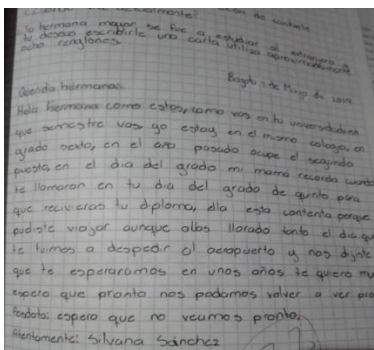 tu hermana mayor se fue a estudiar al extranjero y
tu deseas escribirle una carta utiliza aproximadamente
ocho renglones
Bogota 1 de Mayo de
Querida hermana:
Hola hermana como estas, como vas en tu universidad en
que semestre vas yo estoy en el mismo colegio, en
grado sexto, en el año pasado ocupe el segundo
puesto, en el dia del grado mi mama recordo cuando
te llamaron en tu dia del grado de quinto para
que recivieras tu diploma, ella esta contenta porque
pudiste viajar aunque allas llorado tanto el dia que
te fuimos a despedir al aeropuerto y nos dijiste
que te esperaramos en unos años te quiero
espero que pronto nos podamos volver a ver
Posdata: espero que no veamos pronto,
Atentamente: Silvana Sánchez